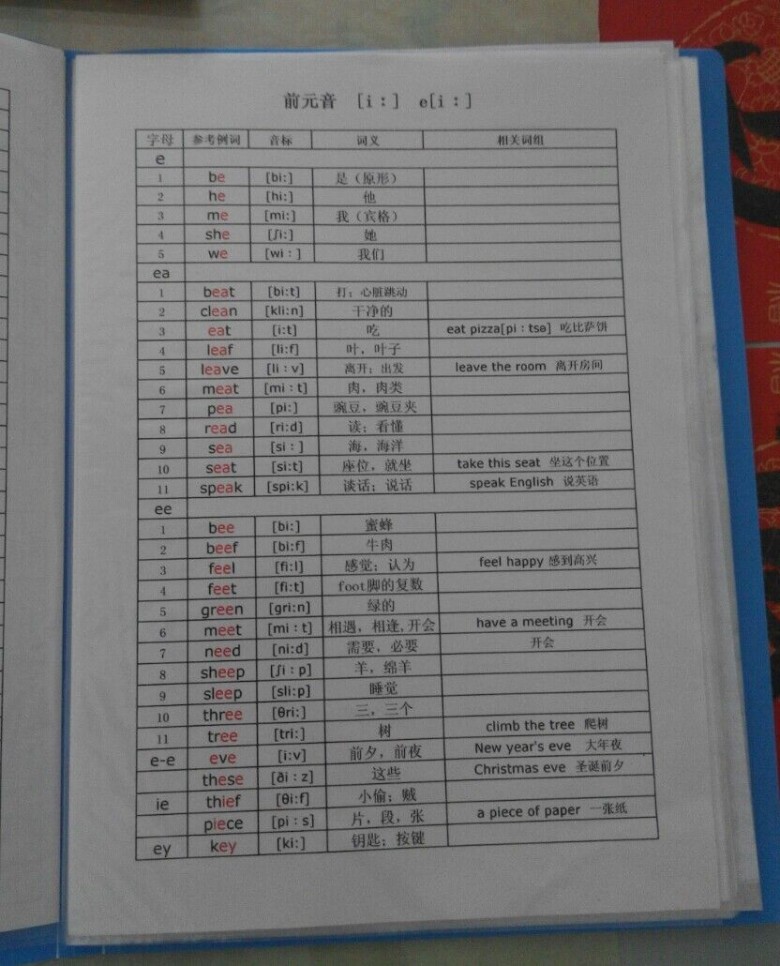 前元音 [i:] e[i:]
字母 参考例词 音标 词义 相关词组
e
1 be [bi:] 是（原形）
2 he [hi:] 他
3 me [mi:] 我（宾格）
4 she [ʃi:] 她
5 we [wi:] 我们
ea
1 beat [bi:t] 打；心脏跳动
2 clean [kli:n] 干净的
3 eat [i:t] 吃 eat pizza[pi:tsə] 吃比萨饼
4 leaf [li:f] 叶，叶子
5 leave [li:v] 离开；出发 leave the room 离开房间
6 meat [mi:t] 肉，肉类
7 pea [pi:] 豌豆，豌豆夹
8 read [ri:d] 读；看懂
9 sea [si:] 海，海洋
10 seat [si:t] 座位，就坐 take this seat 坐这个位置
11 speak [spi:k] 谈话；说话 speak English 说英语
ee
1 bee [bi:] 蜜蜂
2 beef [bi:f] 牛肉
3 feel [fi:l] 感觉；认为 feel happy 感到高兴
4 feet [fi:t] foot脚的复数
5 green [gri:n] 绿的
6 meet [mi:t] 相遇，相逢,开会 have a meeting 开会
7 need [ni:d] 需要，必要 开会
8 sheep [ʃi:p] 羊，绵羊
9 sleep [sli:p] 睡觉
10 three [θri:] 三，三个
11 tree [tri:] 树 climb the tree 爬树
e-e eve [i:v] 前夕，前夜 New year's eve 大年夜
these [ði:z] 这些 Christmas eve 圣诞前夕
ie thief [θi:f] 小偷；贼
piece [pi:s] 片，段，张 a piece of paper 一张纸
ey key [ki:] 钥匙；按键